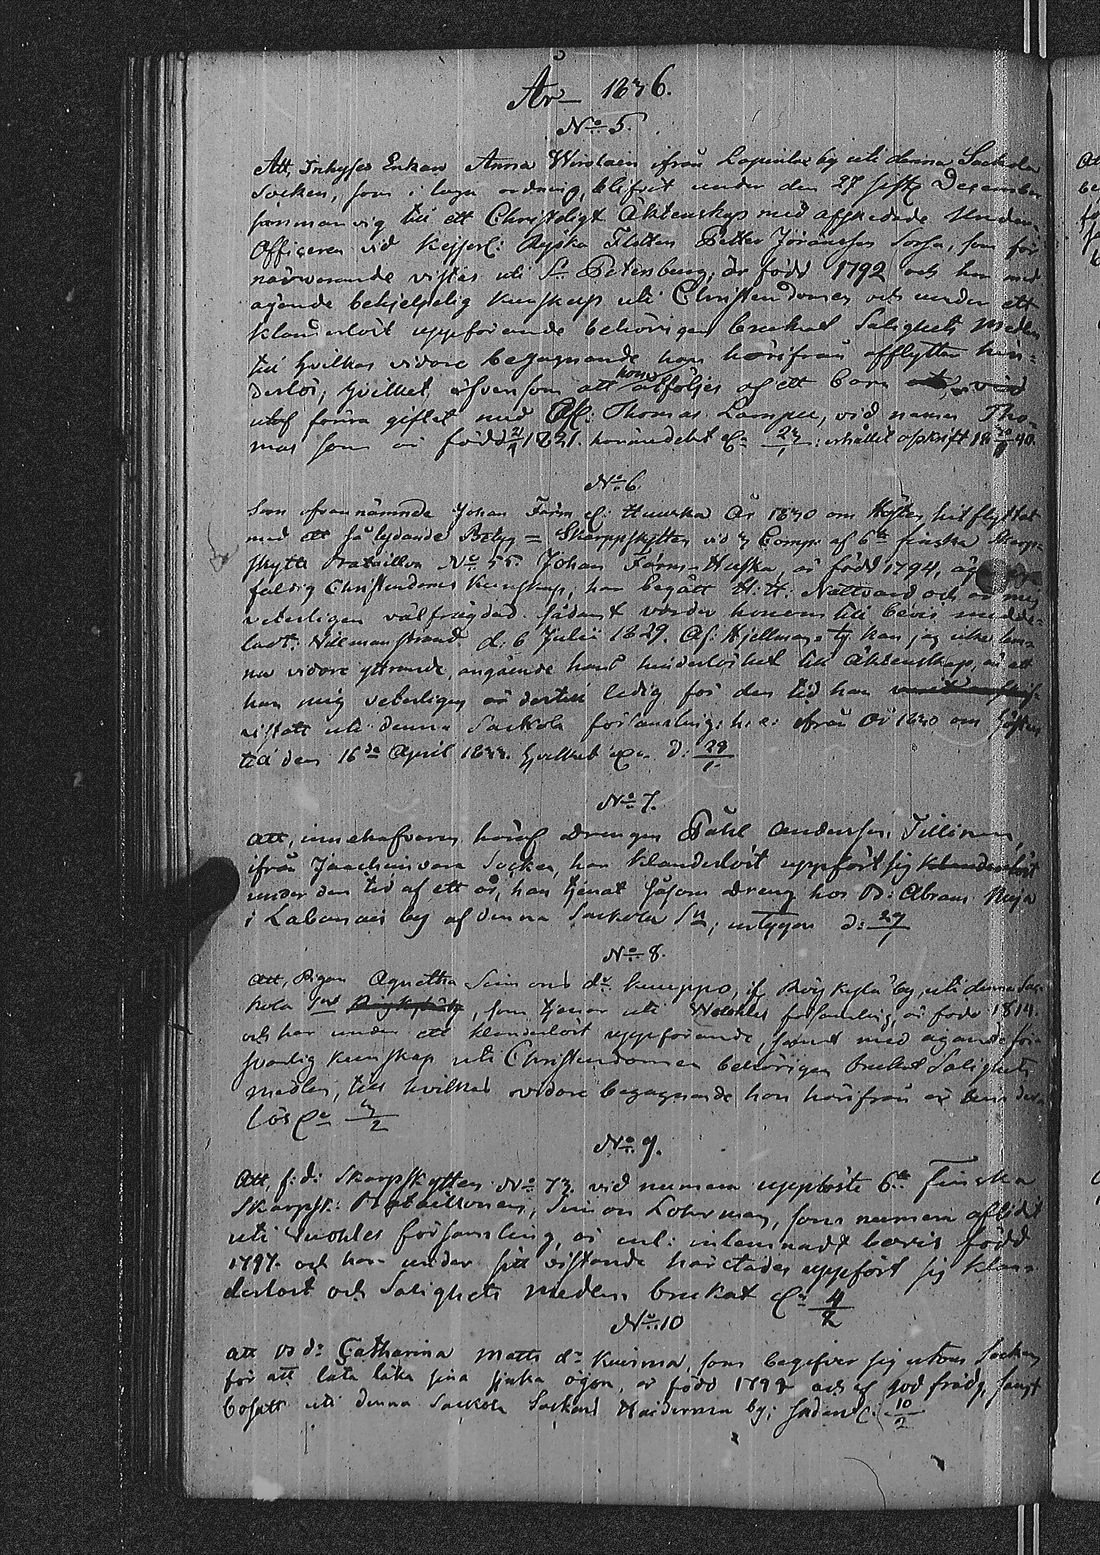 År 1836.
No 5.
Att, Inhyses Enkan Anna ifrån by uti denna Sackola
Socken, som i laga ordning, blifvit under den 27 sistl December
till ett Christeligt Äktenskap med afskedade Under-
Officeren vid Kejserl: Ryska Flottan Petter Jöransson Sorsa, som för
närvarande vistas uti St Petersburg; är född 1792 och har med
ägande behjelpelig kunskap uti Christendomen och under ett
klanderlöst uppförande behörigen brukat Salighets medlen
till hvilkas vidare begagnande hon härifrån afflyttar hin-
derlös; hvilket, äfvensom att hon åtföljes af ett barn
utaf förra giftet med Thomas, vid namn Tho-
mas som är född 1821. erhållit afskrift 40.
No 6.
Som ofvannämnde Johan Törn Huuska År 1830 om Hösten hitflyttat
med ett så lydande Betyg = Skarpskytten vid 3 Comp: af 6te finska Skarp-
skytte Bataillon No 55. Johan Törn Huska, är född 1794, äg
faldig Christendoms kunskap, har begått H: H: Nattvard och är mig
veterligen välfrägdad. Sådant varder honom till bevis medde-
lat. Willmanstrand d: 6 Julii 1829. Af: Hjellman = Ty kan jag icke
nu vidare yttrande, angående hans hinderlöshet till äktenskap, än att
han mig veterligen är dertill ledig för den tid han
vistats uti denna Sackola församling: h: e: ifrån År 1830 om Hösten
till den 16de April 1833. Hvilket d: 28/1.
No 7.
Att, innehafvaren häraf Drengen Påhl Andersson Tillinen,
ifrån Jaackimvara Socken, har klanderlöst uppfört sig klanderlöst
under den tid af ett år, han tjenat såsom Dreng hos Bd: Abram
i Labonais by af denna Sackola Sn, intygar d: 27/1
No 8.
Att, Pigan Agnetha Simons dr Kemppo, if by, uti denna Sac-
kola Sn, som tjenar uti församling, är född 1814.
och har under ett klanderlöst uppförande, samt med ägande för-
svarlig kunskap uti Christendomen behörigen brukat Salighets
medlen, till hvilkas vidare begagnande hon härifrån är hin der-
lös 3/2
No 9.
Att f: d: Skarpskytten No 73 vid numera upplöste 6te Finska
Skarpsk: Bataillonen, Simon Lohrman, som numera aflidit
uti församling, är enl: inlemnadt bevis född
1797. och har under sitt vistande härstädes uppfört sig klan-
derlöst och Salighets medlen brukat 4/2
No 10
Att Bd: Catharina Matts dr Kuisma, som begifver sig utom Socken
för att låta läka sina sjuka ögon, är född 1792 och af god frägd, samt
bosatt uti denna Sackola Sockens by; sådant 10/2